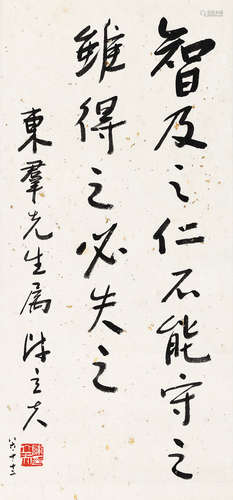 智及之仁不能守之
雖得之必失之
東羣先生属 陳立夫